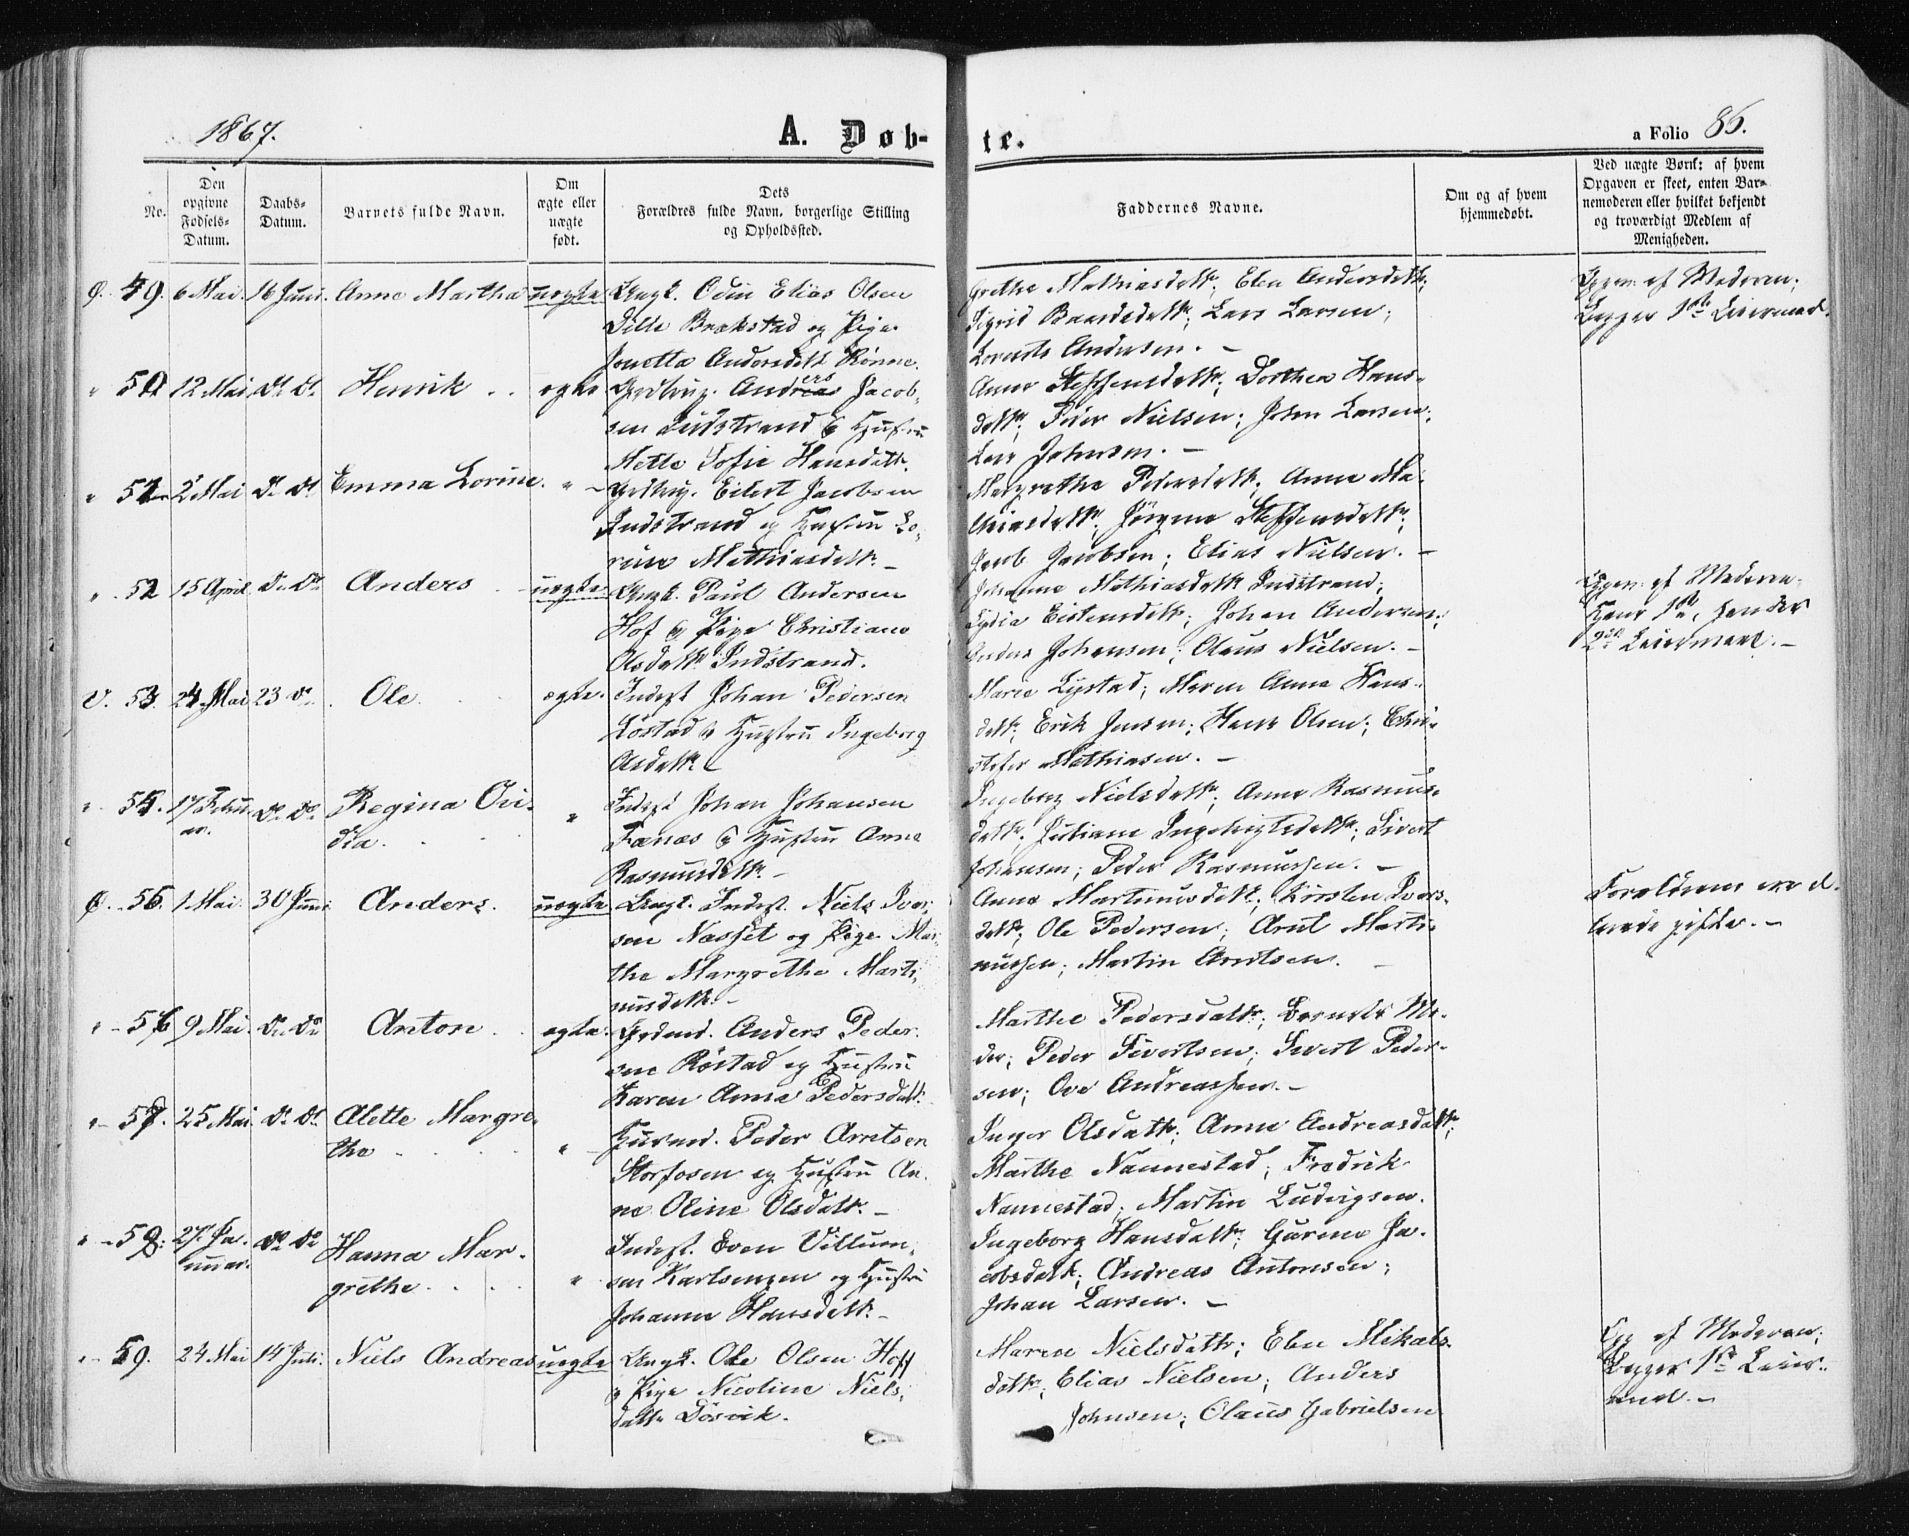 1867.
A. Døb-
te.
a Folio 86.
No.
Den
opgivne
Fødsels-
Datum.
Daabs-
Datum.
Barnets fulde Navn.
Om
ægte eller
uægte
født.
Dets
Forældres fulde Navn, borgerlige Stilling
og Opholdssted.
Faddernes Navne.
Om og af hvem
hjemmedøbt.
Ved uægte Børn: af hvem
Opgaven er skeet, enten Bar-
nemoderen eller hvilket bekjendt
og troværdigt Medlem af
Menigheden.
Ø. 49. 6 Mai. 16 Juni. Anne Martha uægte Ungk. Odin Elias Olsen
Brækstad og Pige
Jonetta Andersdatt. Rønne.
Grethe Mathiasdatt.; Elen Andersdatt.;
Sigrid Baardsdatt.; Lars Larsen;
Lorents Andersen. -
af Moderen;
Begges 1ste Leiermaal.
" 50 12 Mai Do Do Henrik ægte Anders Jacob-
sen Indstrand & Hustru
Mette Sofie Hansdatt.
Anne Steffensdatt.; Dorthea Hans-
datt.; Peder Nielsen; Johan Larsen;
Lars Johnsen. -
" 51 2 Mai Do Do Emma Lorine. " Eilert Jacobsen
Indstrand og Hustru Lo-
rine Mathiasdatt. -
Margrethe Pedersdatt.; Anne Ma-
thiasdatt.; Jørgine Steffensdatt.;
Jacob Jacobsen; Elias Nielsen. -
" 52 15 April Do Do Anders uægte Ungk. Paul Andersen
Hof & Pige Christiane
Olsdatt. Indstrand.
Johanne Mathiasdatt. Indstrand;
Lydia Eistensdatt.; Johan Andersen;
Anders Johansen; Olaus Nielsen. -
af Moderen.
Hans 1ste, hendes
2det Leiermaal. -
V. 53. 24 Mai 23 do. Ole ægte. Indst. Johan Pedersen
Løstad & Hustru Ingeborg
Olsdatt.
Marie Lystad; Maren Anna Hans-
datt.; Erik Jensen; Hans Olsen; Chri-
stofer Mathiasen. -
" 54. 17 Febru-
ar. Do Do Regina Ovi-
dia. " Indst. Johan Johansen
Fanæs & Hustru Anne
Rasmusdatt. -
Ingeborg Nielsdatt.; Anne Rasmus-
datt.; Juliane Ingebrigtsdatt.; Sivert
Johansen; Peder Rasmussen. -
Ø. 55. 1 Mai. 30 Juni. Anders. uægte Ungk. Indst. Niels Ivar-
sen Næsset og Pige Mar-
the Margrethe Marti-
nusdatt. -
Anne Martinusdatt.; Kirsten Ivars-
datt.; Ole Pedersen; Arnt Marti-
nussen; Martin Arntsen. -
Forældrene ere al-
lerede gifte. -
" 56 9 Mai. Do Do Anton ægte. Gdmd. Anders Peder-
sen Røstad og Hustru
Karen Anna Pedersdatt.
Marthe Pedersdatt.;
Peder Sivertsen; Sivert Peder-
sen; Ove Andreassen. -
" 57. 25 Mai. Do Do. Alette Margre-
the " Husmd. Peder Arntsen
Storfosen og Hustru An-
ne Oline Olsdatt. -
Inger Olsdatt.; Anne Andreasdatt.;
Marthe Nannestad; Fredrik
Nannestad; Martin Ludvigsen.
" 58. 27. Ja-
nuar. Do Do Hanna Mar-
grethe. " Indst. Even Villum-
sen Karlsengen og Hustru
Johanna Hansdatt. -
Ingeborg Hansdatt.; Gurine Ja-
cobsdatt.; Andreas Antonsen;
Johan Larsen. -
" 59. 24 Mai 14 Juli. Niels Andreas uægte Ungk. Ole Olsen Hoff
& Pige Nicoline Niels-
datt. Døsvik.
Maren Nielsdatt.; Elen Mikals-
datt.; Elias Nielsen; Anders
Johnsen; Olaus Gabrielsen
af Moderen;
Begges 1ste Leier-
maal. -